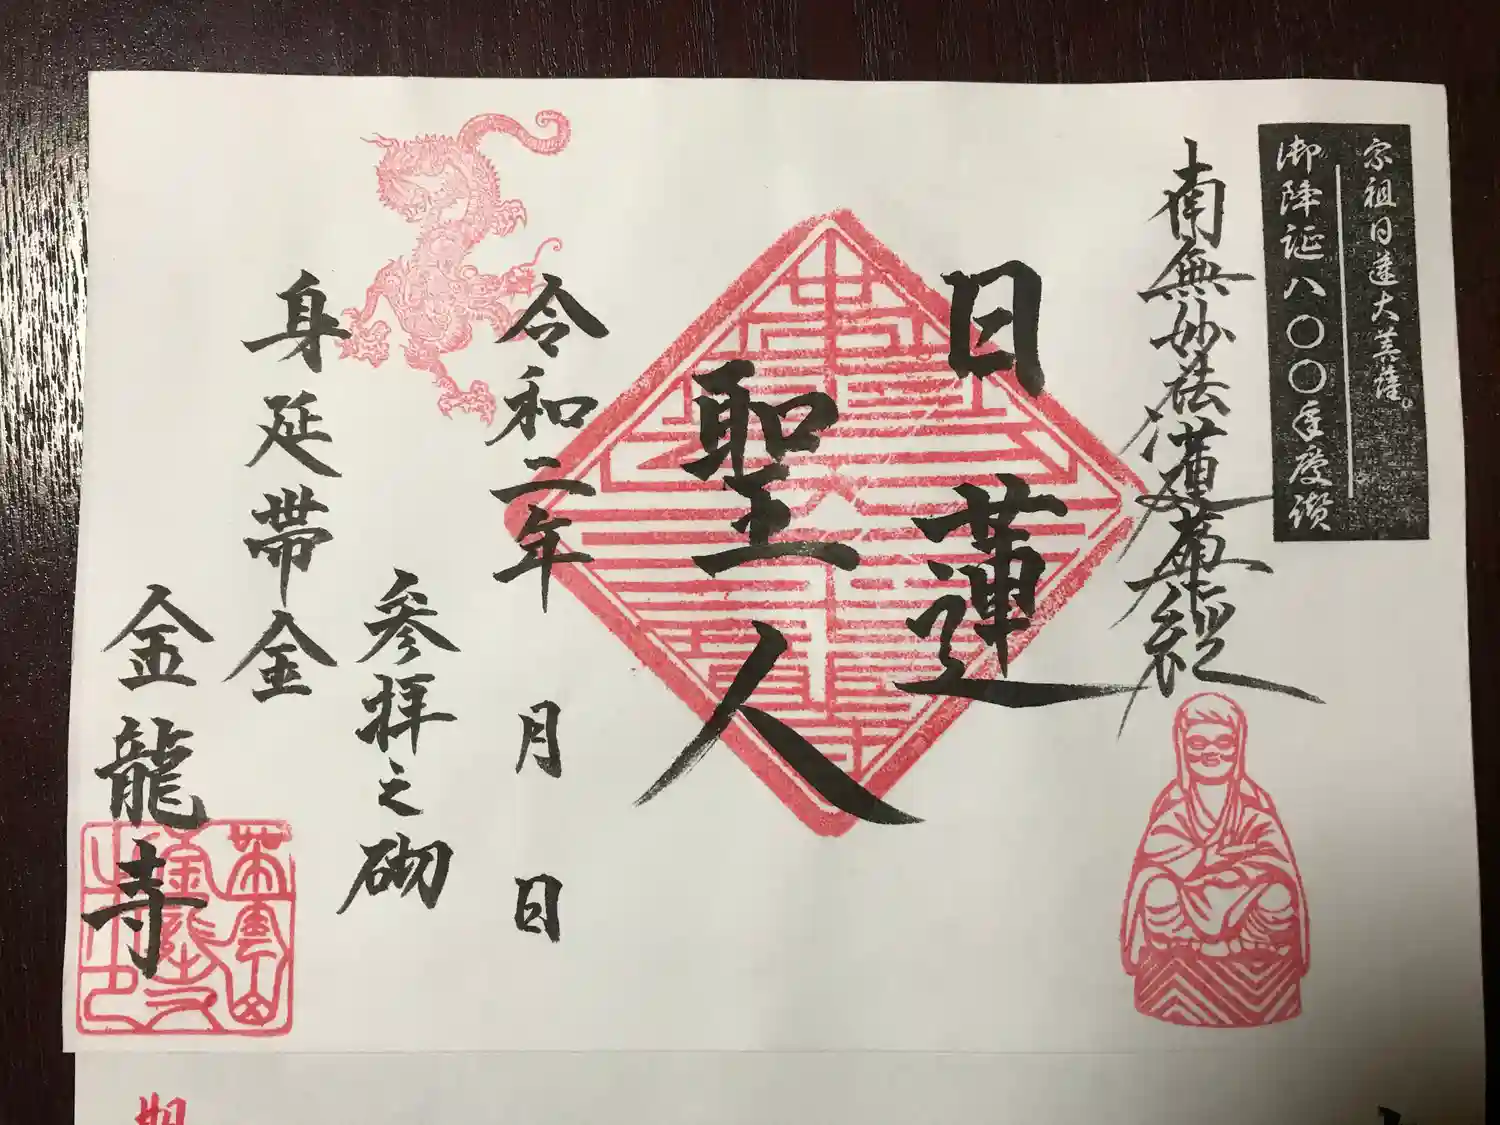 宗祖日蓮大菩薩。
御降誕八〇〇年慶讃
南無妙法蓮華経
日蓮
聖人
令和二年 月 日
参拝之砌
身延帯金
金龍寺